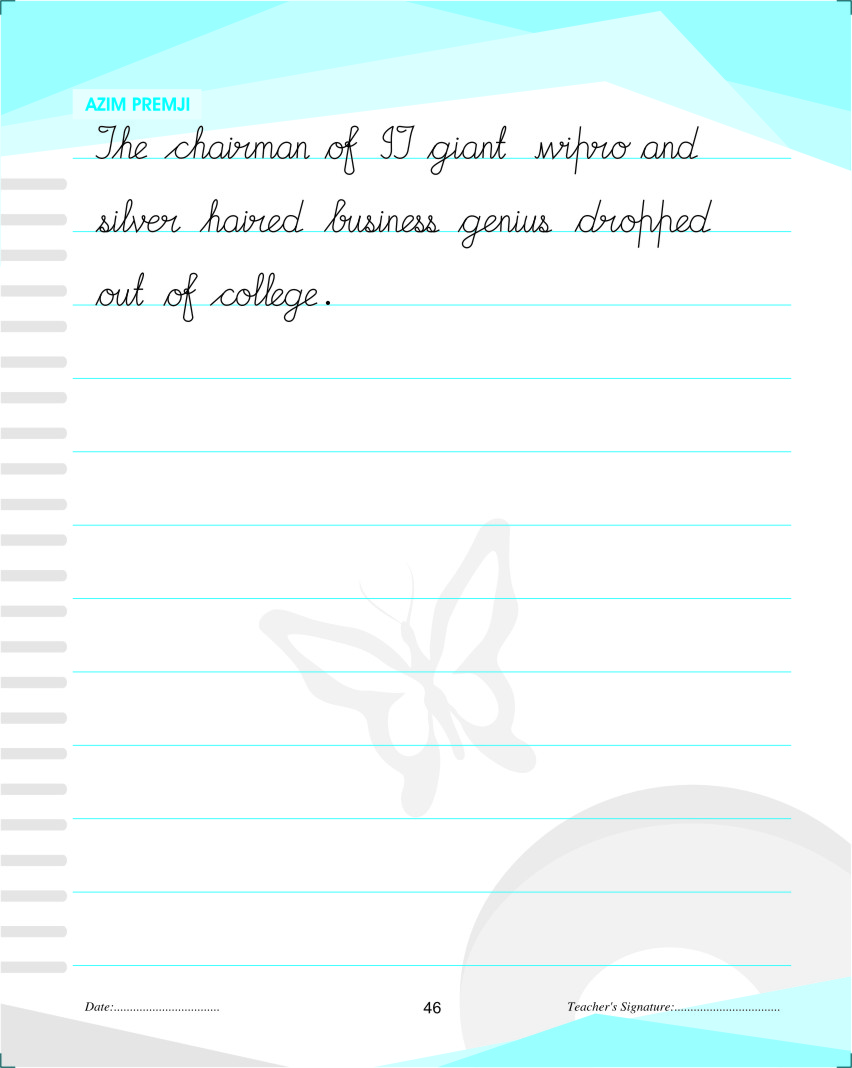 AZIM PREMJI
The chairman of IT giant wipro and
silver haired business genius dropped
out of college.
Date:................................. 46 Teacher's Signature:.................................